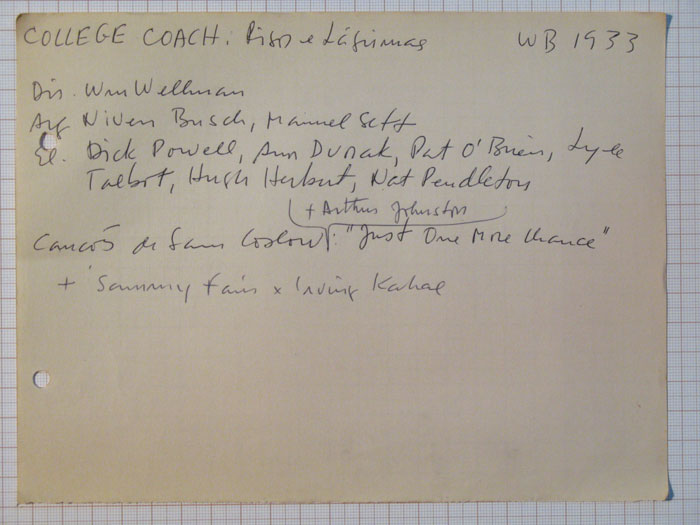 COLLEGE COACH: Risos e Lágrimas WB 1933
Dir. Wm Wellman
Arg Niven Busch, Manuel Seff
El. Dick Powell, Ann Dvorak, Pat O'Brien, Lyle
Talbot, Hugh Herbert, Nat Pendleton
+ Arthur Johnston
Canções de Sam Coslow: "Just One More Chance"
+ Sammy Fain x Irving Kahal